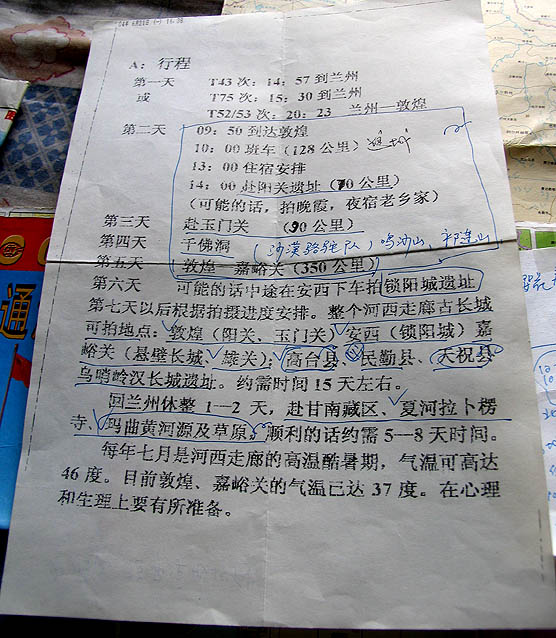 A: 行程
第一天 T43 次: 14: 57 到兰州
或 T75 次: 15: 30 到兰州
T52/53 次: 20: 23 兰州—敦煌
第二天 09: 50 到达敦煌
10: 00 班车 (128 公里)
13: 00 住宿安排
14: 00 赴阳关遗址 (70 公里)
(可能的话，拍晚霞，夜宿老乡家)
第三天 赴玉门关 (90 公里)
第四天 千佛洞 (沙漠骆驼队) 鸣沙山、祁连山
第五天 敦煌—嘉峪关 (350 公里)
第六天 可能的话中途在安西下车拍锁阳城遗址
第七天以后根据拍摄进度安排。整个河西走廊古长城
可拍地点: 敦煌 (阳关、玉门关) 安西 (锁阳城) 嘉
峪关 (悬壁长城、雄关); 高台县、民勤县、天祝县
乌哨岭汉长城遗址。约需时间 15 天左右。
回兰州休整 1—2 天，赴甘南藏区、夏河拉卜楞
寺、玛曲黄河源及草原，顺利的话约需 5—8 天时间。
每年七月是河西走廊的高温酷暑期，气温可高达
46 度。目前敦煌、嘉峪关的气温已达 37 度。在心理
和生理上要有所准备。
通